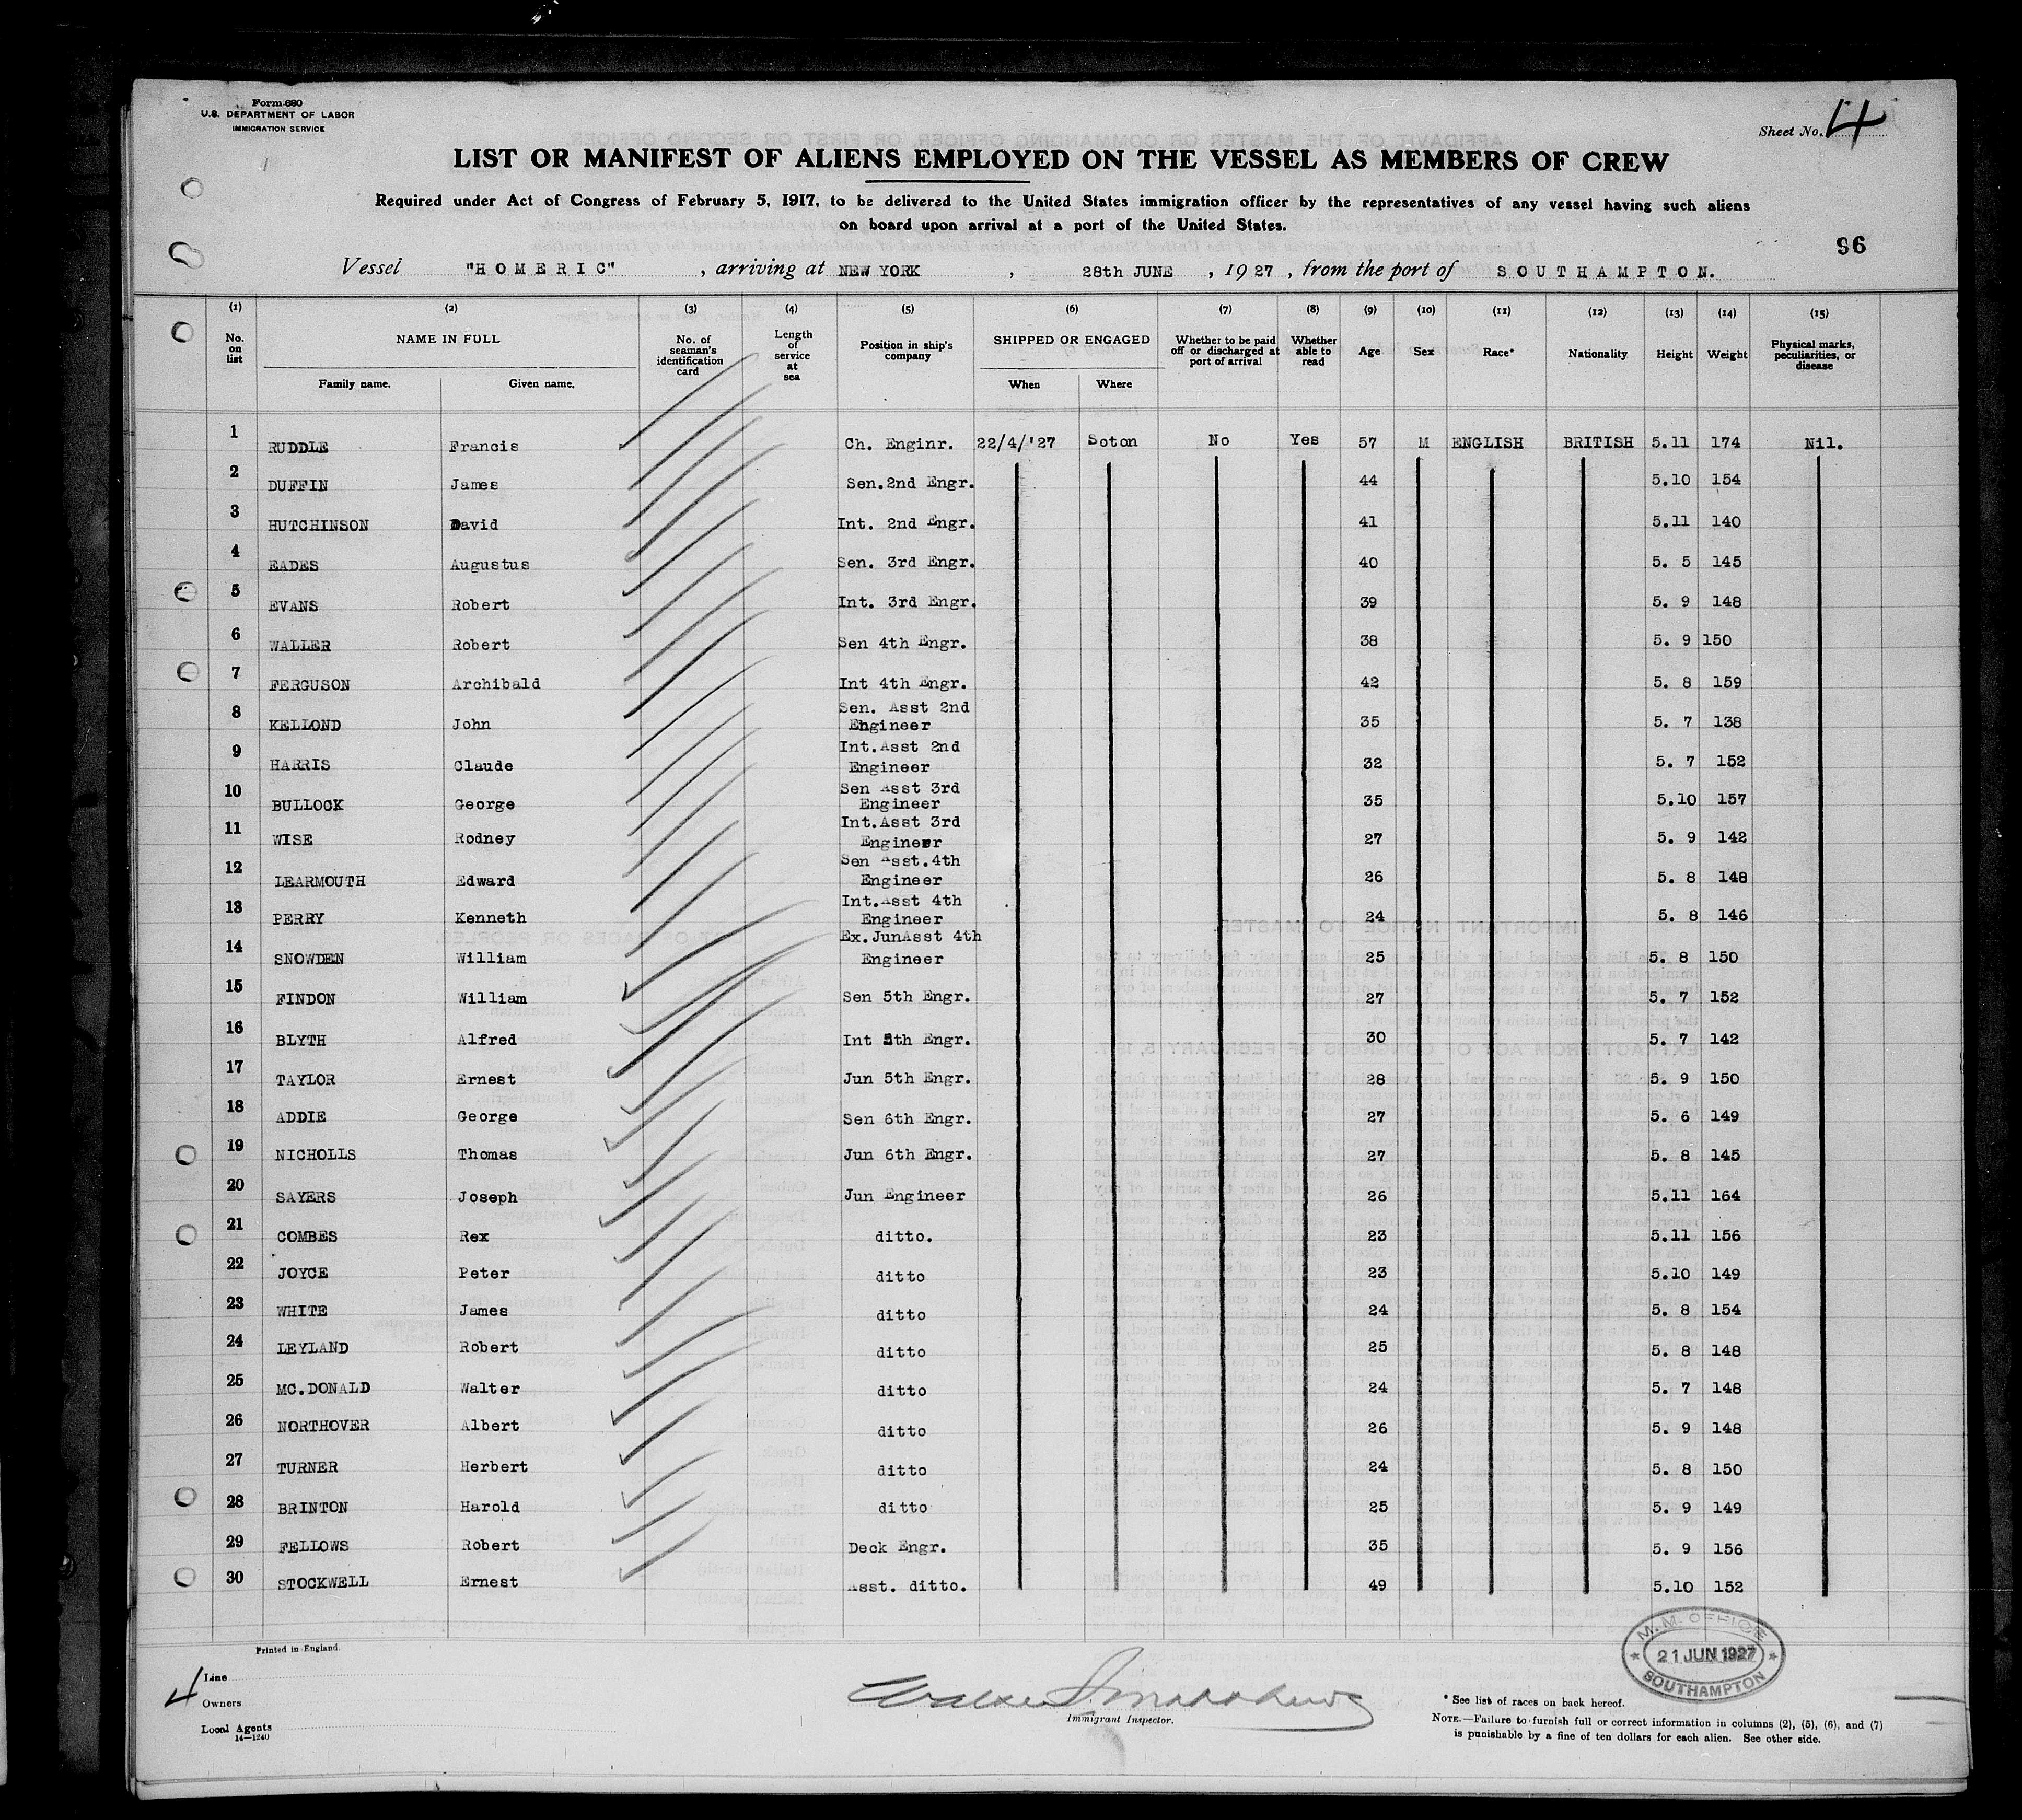 Form 680
U.S. DEPARTMENT OF LABOR
IMMIGRATION SERVICE
Sheet No. 4
LIST OR MANIFEST OF ALIENS EMPLOYED ON THE VESSEL AS MEMBERS OF CREW
Required under Act of Congress of February 5, 1917, to be delivered to the United States immigration officer by the representatives of any vessel having such aliens
on board upon arrival at a port of the United States.
96
Vessel "HOMERIC", arriving at NEW YORK, 28th JUNE, 1927, from the port of SOUTHAMPTON.
(1) (2) (3) (4) (5) (6) (7) (8) (9) (10) (11) (12) (13) (14) (15)
No. on list NAME IN FULL Family name. Given name. No. of seaman's identification card Length of service at sea Position in ship's company SHIPPED OR ENGAGED When Where Whether to be paid off or discharged at port of arrival Whether able to read Age Sex Race* Nationality Height Weight Physical marks, peculiarities, or disease
1 RUDDLE Francis Ch. Enginr. 22/4/'27 Soton No Yes 57 M ENGLISH BRITISH 5.11 174 Nil.
2 DUFFIN James Sen.2nd Engr. 44 5.10 154
3 HUTCHINSON David Int. 2nd Engr. 41 5.11 140
4 EADES Augustus Sen. 3rd Engr. 40 5. 5 145
5 EVANS Robert Int. 3rd Engr. 39 5. 9 148
6 WALLER Robert Sen 4th Engr. 38 5. 9 150
7 FERGUSON Archibald Int 4th Engr. 42 5. 8 159
8 KELLOND John Sen. Asst 2nd Engineer 35 5. 7 138
9 HARRIS Claude Int.Asst 2nd Engineer 32 5. 7 152
10 BULLOCK George Sen Asst 3rd Engineer 35 5.10 157
11 WISE Rodney Int.Asst 3rd Engineer 27 5. 9 142
12 LEARMOUTH Edward Sen Asst.4th Engineer 26 5. 8 148
13 PERRY Kenneth Int.Asst 4th Engineer 24 5. 8 146
14 SNOWDEN William Ex.JunAsst 4th Engineer 25 5. 8 150
15 FINDON William Sen 5th Engr. 27 5. 7 152
16 BLYTH Alfred Int 5th Engr. 30 5. 7 142
17 TAYLOR Ernest Jun 5th Engr. 28 5. 9 150
18 ADDIE George Sen 6th Engr. 27 5. 6 149
19 NICHOLLS Thomas Jun 6th Engr. 27 5. 8 145
20 SAYERS Joseph Jun Engineer 26 5.11 164
21 COMBES Rex ditto. 23 5.11 156
22 JOYCE Peter ditto 23 5.10 149
23 WHITE James ditto 24 5. 8 154
24 LEYLAND Robert ditto 25 5. 8 148
25 MC.DONALD Walter ditto 24 5. 7 148
26 NORTHOVER Albert ditto 26 5. 9 148
27 TURNER Herbert ditto 24 5. 8 150
28 BRINTON Harold ditto 25 5. 9 149
29 FELLOWS Robert Deck Engr. 35 5. 9 156
30 STOCKWELL Ernest Asst. ditto. 49 5.10 152
Printed in England.
4
Line
Owners
Local Agents
14—1240
Immigrant Inspector.
M. M. OFFICE
21 JUN 1927
SOUTHAMPTON
* See list of races on back hereof.
NOTE.—Failure to furnish full or correct information in columns (2), (5), (6), and (7)
is punishable by a fine of ten dollars for each alien. See other side.